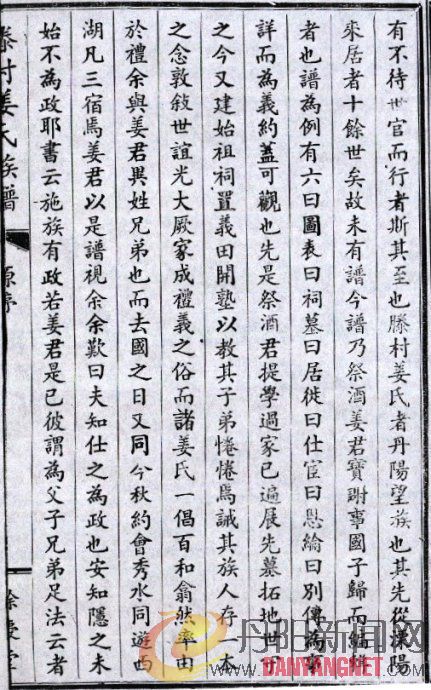 有不待世官而行者斯其至也滕村姜氏者丹陽望族也其先從溧陽
來居者十餘世矣故未有譜今譜乃祭酒姜君寶謝事國子歸而編輯
者也譜為例有六曰圖表曰祠墓曰居徙曰仕宦曰恩綸曰別傳為
詳而為義約蓋可觀也先是祭酒君提學過家已遍展先墓拓地世廿
之今又建始祖祠置義田開塾以教其子弟惓惓焉誠其族人存一本
之念敦敍世誼光大厥家成禮義之俗而諸姜氏一倡百和翕然率由
於禮余與姜君異姓兄弟也而去國之日又同今秋約會秀水同遊西
湖凡三宿焉姜君以是譜視余余歎曰夫知仕之為政也安知隱之未
始不為政耶書云施族有政若姜君是已彼謂為父子兄弟足法云者
滕村姜氏族譜
原序
餘慶堂
丹阳新闻网
DANYANGNET.COM